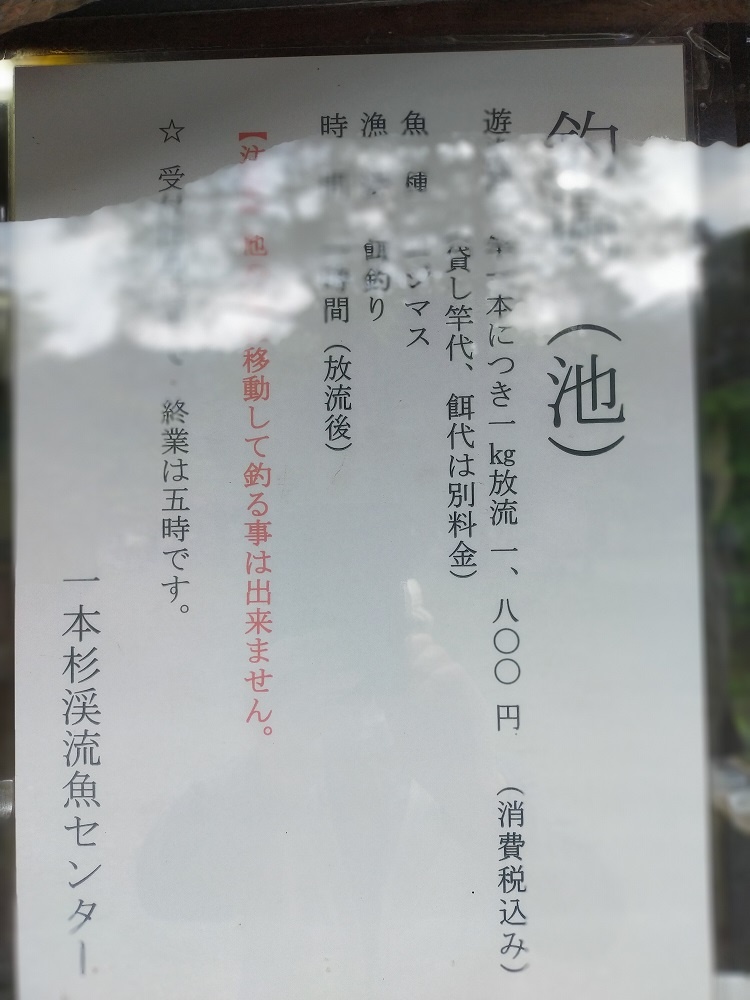 釣 （池）
遊 竿一本につき一kg放流 一、八〇〇 円 （消費税込み）
貸し竿代、餌代は別料金）
魚 種 ニジマス
漁 餌釣り
時 間 一時間（放流後）
【注 池 移動して釣る事は出来ません。
☆ 受付 終業は五時です。
一本杉渓流魚センター